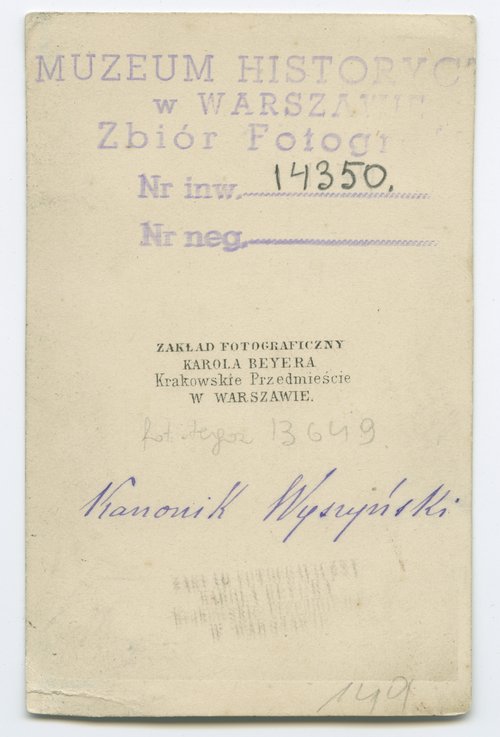 MUZEUM HISTORYC
w WARSZAWIE
Zbiór Fotogr
Nr inw. 14350.
Nr neg.
ZAKŁAD FOTOGRAFICZNY
KAROLA BEYERA
Krakowskie Przedmieście
W WARSZAWIE.
fot. 13649
Kanonik Wyszyński
149